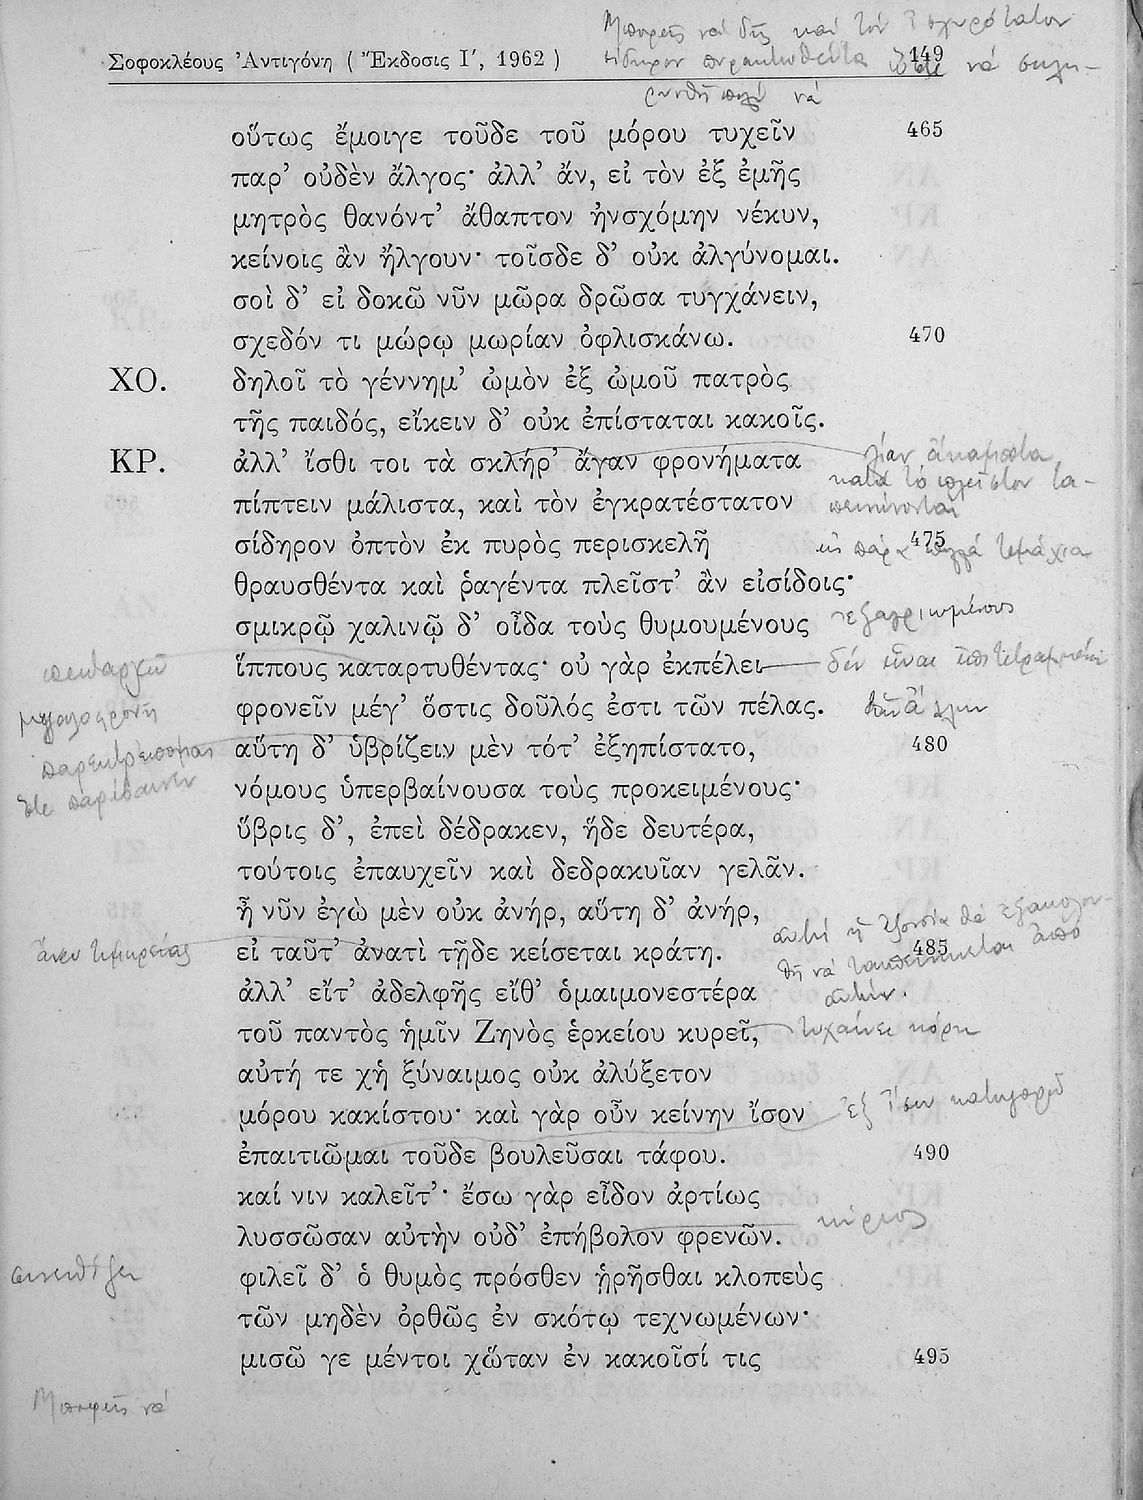 Μπορεῖς νά δῇς καί τόν ἰσχυρότατον
Σοφοκλέους Ἀντιγόνη ( Ἔκδοσις Ι΄, 1962 ) 149
σίδηρον ὥστε νά σκλη-
ρυνθῇ πολύ νά
οὕτως ἔμοιγε τοῦδε τοῦ μόρου τυχεῖν 465
παρ’ οὐδὲν ἄλγος· ἀλλ’ ἄν, εἰ τὸν ἐξ ἐμῆς
μητρὸς θανόντ’ ἄθαπτον ἠνσχόμην νέκυν,
κείνοις ἂν ἤλγουν· τοῖσδε δ’ οὐκ ἀλγύνομαι.
σοὶ δ’ εἰ δοκῶ νῦν μῶρα δρῶσα τυγχάνειν,
σχεδόν τι μώρῳ μωρίαν ὀφλισκάνω. 470
ΧΟ. δηλοῖ τὸ γέννημ’ ὠμὸν ἐξ ὠμοῦ πατρὸς
τῆς παιδός, εἴκειν δ’ οὐκ ἐπίσταται κακοῖς.
ΚΡ. ἀλλ’ ἴσθι τοι τὰ σκλήρ’ ἄγαν φρονήματα λίαν ἄκαμπτα
κατά τό πλεῖστον τα-
πίπτειν μάλιστα, καὶ τὸν ἐγκρατέστατον πεινώνονται
σίδηρον ὀπτὸν ἐκ πυρὸς περισκελῆ 475 εἰς πάρα πολλά τεμάχια
θραυσθέντα καὶ ῥαγέντα πλεῖστ’ ἂν εἰσίδοις·
σμικρῷ χαλινῷ δ’ οἶδα τοὺς θυμουμένους ἐξαγριωμένους
πειθαρχῶ ἵππους καταρτυθέντας· οὐ γὰρ ἐκπέλει δέν εἶναι ἐπιτετραμμένον
μεγαλοφρονῇ φρονεῖν μέγ’ ὅστις δοῦλός ἐστι τῶν πέλας.
παρεκτρέπομαι αὕτη δ’ ὑβρίζειν μὲν τότ’ ἐξηπίστατο, 480
ὅτε παρέβαινεν νόμους ὑπερβαίνουσα τοὺς προκειμένους·
ὕβρις δ’, ἐπεὶ δέδρακεν, ἥδε δευτέρα,
τούτοις ἐπαυχεῖν καὶ δεδρακυῖαν γελᾶν.
ἦ νῦν ἐγὼ μὲν οὐκ ἀνήρ, αὕτη δ’ ἀνήρ, αὐτή ἡ ἐξουσία θά ἐξακολου-
ἄνευ τιμωρίας εἰ ταῦτ’ ἀνατὶ τῇδε κείσεται κράτη. 485
θῇ νά ἀπό
ἀλλ’ εἴτ’ ἀδελφῆς εἴθ’ ὁμαιμονεστέρα αὐτήν.
τοῦ παντὸς ἡμῖν Ζηνὸς ἑρκείου κυρεῖ, τυχαίνει κόρη
αὐτή τε χἠ ξύναιμος οὐκ ἀλύξετον
μόρου κακίστου· καὶ γὰρ οὖν κείνην ἴσον ἐξ ἴσου κατηγορῶ
ἐπαιτιῶμαι τοῦδε βουλεῦσαι τάφου. 490
καί νιν καλεῖτ’· ἔσω γὰρ εἶδον ἀρτίως
λυσσῶσαν αὐτὴν οὐδ’ ἐπήβολον φρενῶν. κύριος
συνειθίζει φιλεῖ δ’ ὁ θυμὸς πρόσθεν ᾑρῆσθαι κλοπεὺς
τῶν μηδὲν ὀρθῶς ἐν σκότῳ τεχνωμένων·
μισῶ γε μέντοι χὤταν ἐν κακοῖσί τις 495
Μπορεῖς νά